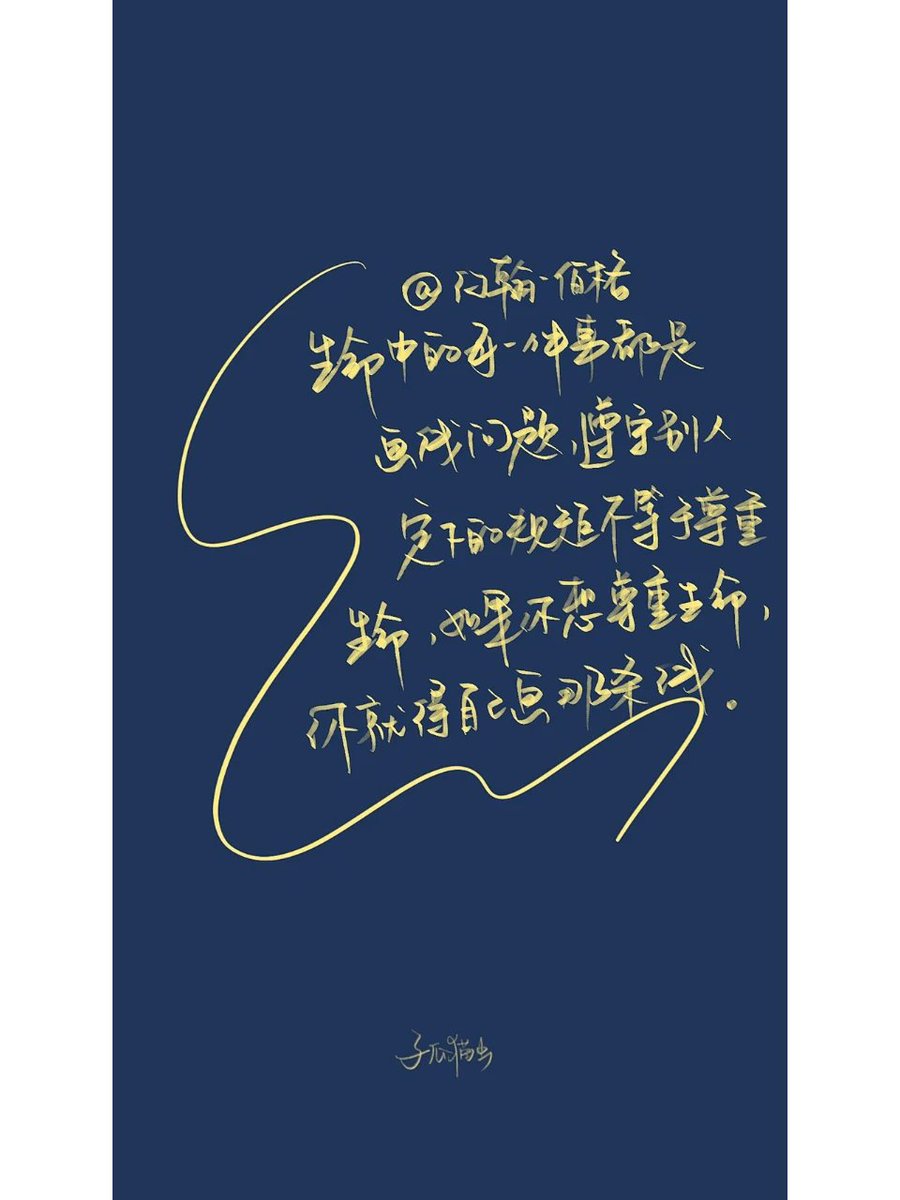 @约翰·伯格
生命中的每一件事都是
画线问题,遵守别人
定下的规矩不等于尊重
生命,如果你想尊重生命,
你就得自己画那条线。